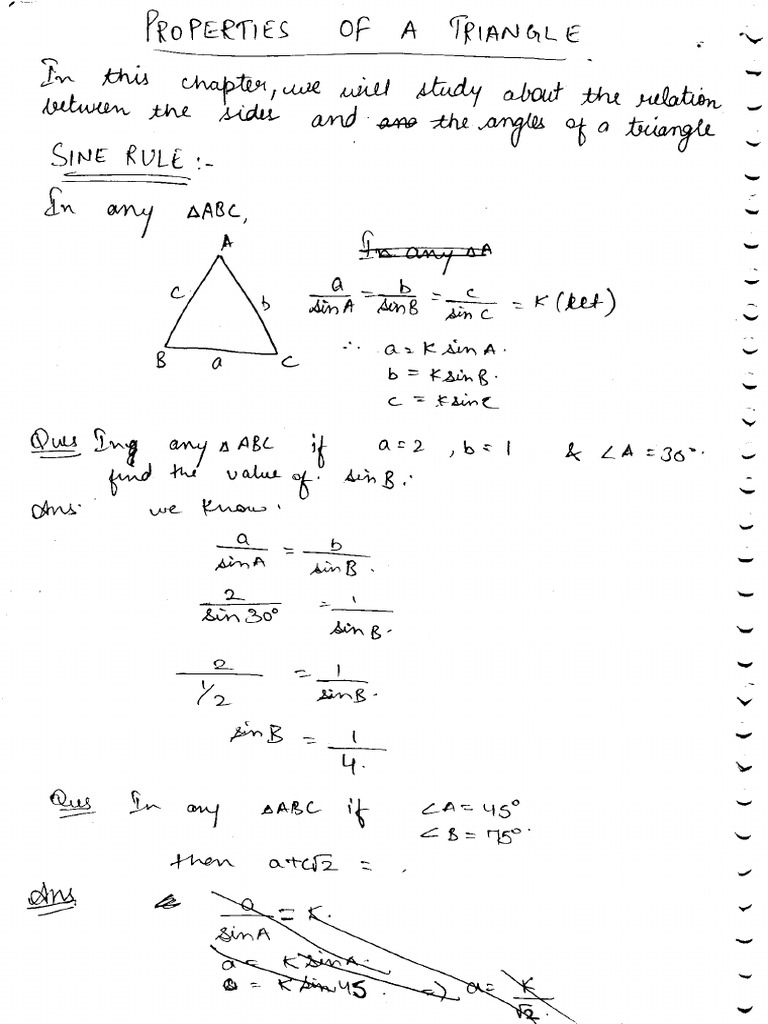 PROPERTIES OF A TRIANGLE
In this chapter, we will study about the relation
between the sides and are the angles of a triangle
SINE RULE :-
In any ΔABC,
A
In any ΔA
c
b
B
a
C
a/sinA = b/sinB = c/sinC = K (let)
∴ a = K sinA.
b = K sinB.
c = K sinC
Ques In any ΔABC if a = 2 , b = 1 & ∠A = 30°.
find the value of sinB.
Ans. we know.
a/sinA = b/sinB.
2/sin30° = 1/sinB.
2/1/2 = 1/sinB.
sinB = 1/4.
Ques In any ΔABC if ∠A = 45°
∠B = 75°.
then a+c√2 = .
Ans.
a/sinA = K.
a = K sinA.
= K sin45. => a = K/√2